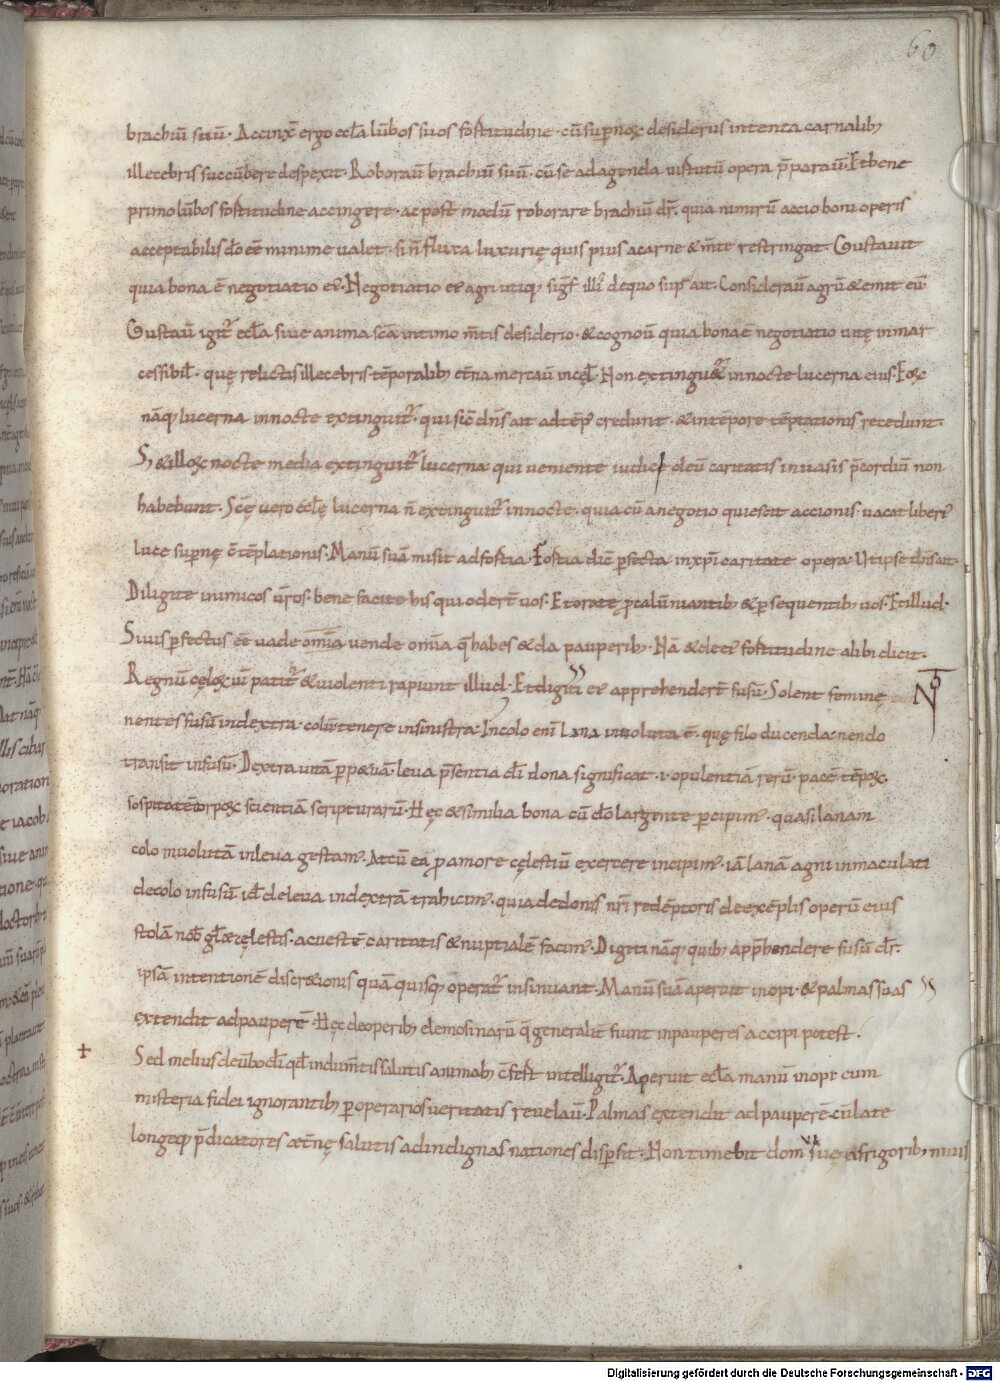 60
brachiū suū. Accinx̄ ergo eccła lūbos suos fortitudine. cū supnoꝝ desideriis intenta carnalib;
illecebris succūbere despexit. Roborau̅ brachiū suū. cū se ad agenda uirtutū opera p̄parau̅. Et bene
primo lūbos fortitudine accingere. ac post modū roborare brachiū dr̄. quia nimirū accio boni operis
acceptabilis dō eē minime ualet. si n̄ fluxa luxurię quis prius a carne & m̄te restringat. Gustauit
quia bona ē negotiatio ei'. Negotiatio ei' agri utiq; sigf̄ illi' de quo sup' ait. Considerau̅ agrū & emit eū
Gustau̅ igit̄ eccła siue anima sc̄a intimo m̄tis desiderio. & cognou̅ quia bona ē negotiatio uitę inmar
cessibil'. quę relictis illecebris tēporalib; et̄na mercau̅ in cęl'. Non extinguet̄ in nocte lucerna eius. Eoꝝ
nāq; lucerna in nocte extinguit̄. qui sic̄ dn̄s ait ad tēp' credunt. & in tēpore tēptationis recedunt.
S; & illoꝝ nocte media extinguit̄ lucerna qui ueniente iudice oleū caritatis in uasis p̄cordiū non
habebunt. Scę̄ uero eccłę lucerna n̄ extinguit̄ in nocte. quia cū a negotio quiescit accionis. uacat liberi'
luce supnę c̄tēplationis. Manū suā misit ad fortia. Fortia dic̄ pfecta in xp̄i caritate opera. Ut ipse dn̄s ait
Diligite inimicos ur̄os. bene facite his qui oder̄t uos. Et orate p̱ calūniantib; & psequentib; uos. Et illud.
Si uis pfectus eē uade omīa uende omīa q̄ habes & da paupib;. Nā & de ei' fortitudine alibi dicit.
Regnū cęloꝝ uī patit̄ & uiolenti rapiunt illud. Et digiti ei' apprehender̄t fusū. Solent feminę
nentes fusū in dextra. colū tenere in sinistra. In colo enī lana inuoluta ē. quę filo ducenda nendo
transit in fusū. Dextra uitā ppetuā. leua p̄sentia dī dona significat. i. opulentiā rerū. pacē tēpoꝝ.
sospitatē corpoꝝ scientiā scripturarū. Hęc & similia bona cū dō largente pcipim'. quasi lanam
colo inuolutā in leua gestam'. At cū ea p̱ amore cęlestiū exercere incipim'. iā lanā agni inmaculati
de colo in fusū id̄ de leua in dextrā trahicim'. quia de donis nr̄i redēptoris de exēplis operū eius
stolā nob' głæ cęlestis. ac uestē caritatis & nuptialē facim'. Digiti nāq; quib; app̄hendere fusū dr̄.
ipsā intentionē discretionis quā quisq; operat̄ insinuant. Manū suā aperuit inopi. & palmas suas
extendit ad pauperē. Hęc de operib; elemosinarū q̄ generalit̄ fiunt in pauperes accipi potest.
Sed melius de ūbo dī qd̄ indum̄tis salutis animab; c̄fert intelligit̄. Aperuit eccła manū inopi cum
misteria fidei ignorantib; p operarios ueritatis reuelau̅. Palmas extendit ad pauperē. cū late
longeq; p̄dicatores æt̄nę salutis ad indignas nationes dispsit. Non timebit domui suę a frigorib; niuis